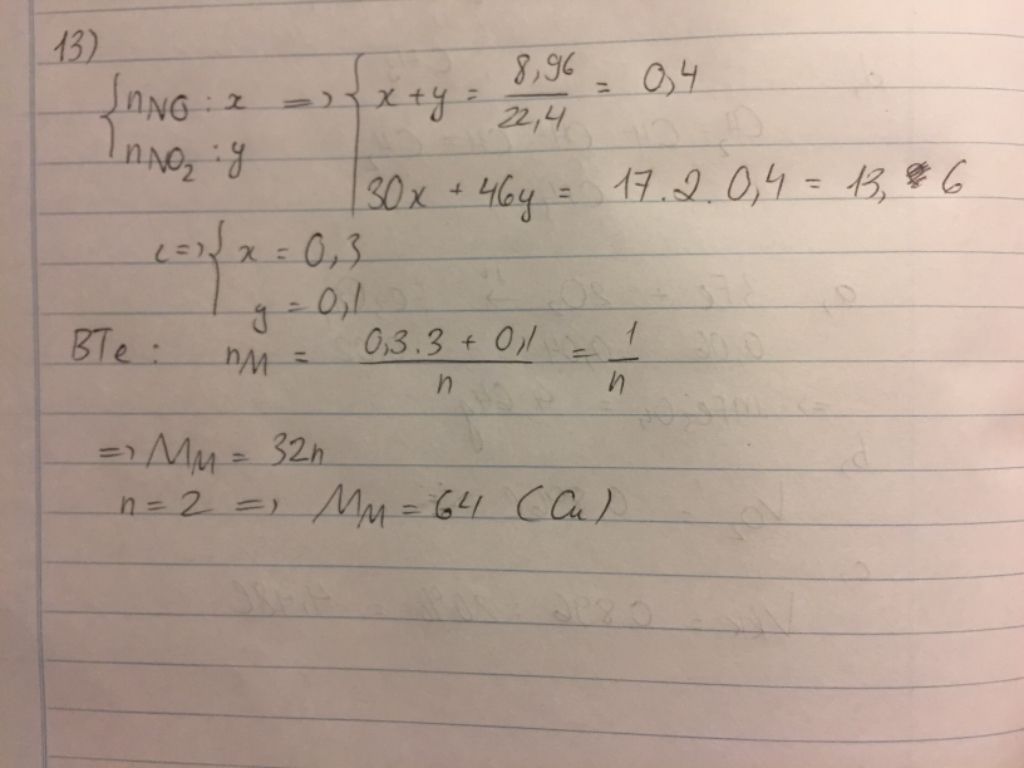 13)
{ nNO : x => { x + y = 8,96/22,4 = 0,4
nNO2 : y
30x + 46y = 17.2.0,4 = 13,6
<=> { x = 0,3
y = 0,1
BTe : nM = (0,3.3 + 0,1)/n = 1/n
=> MM = 32n
n = 2 => MM = 64 (Cu)